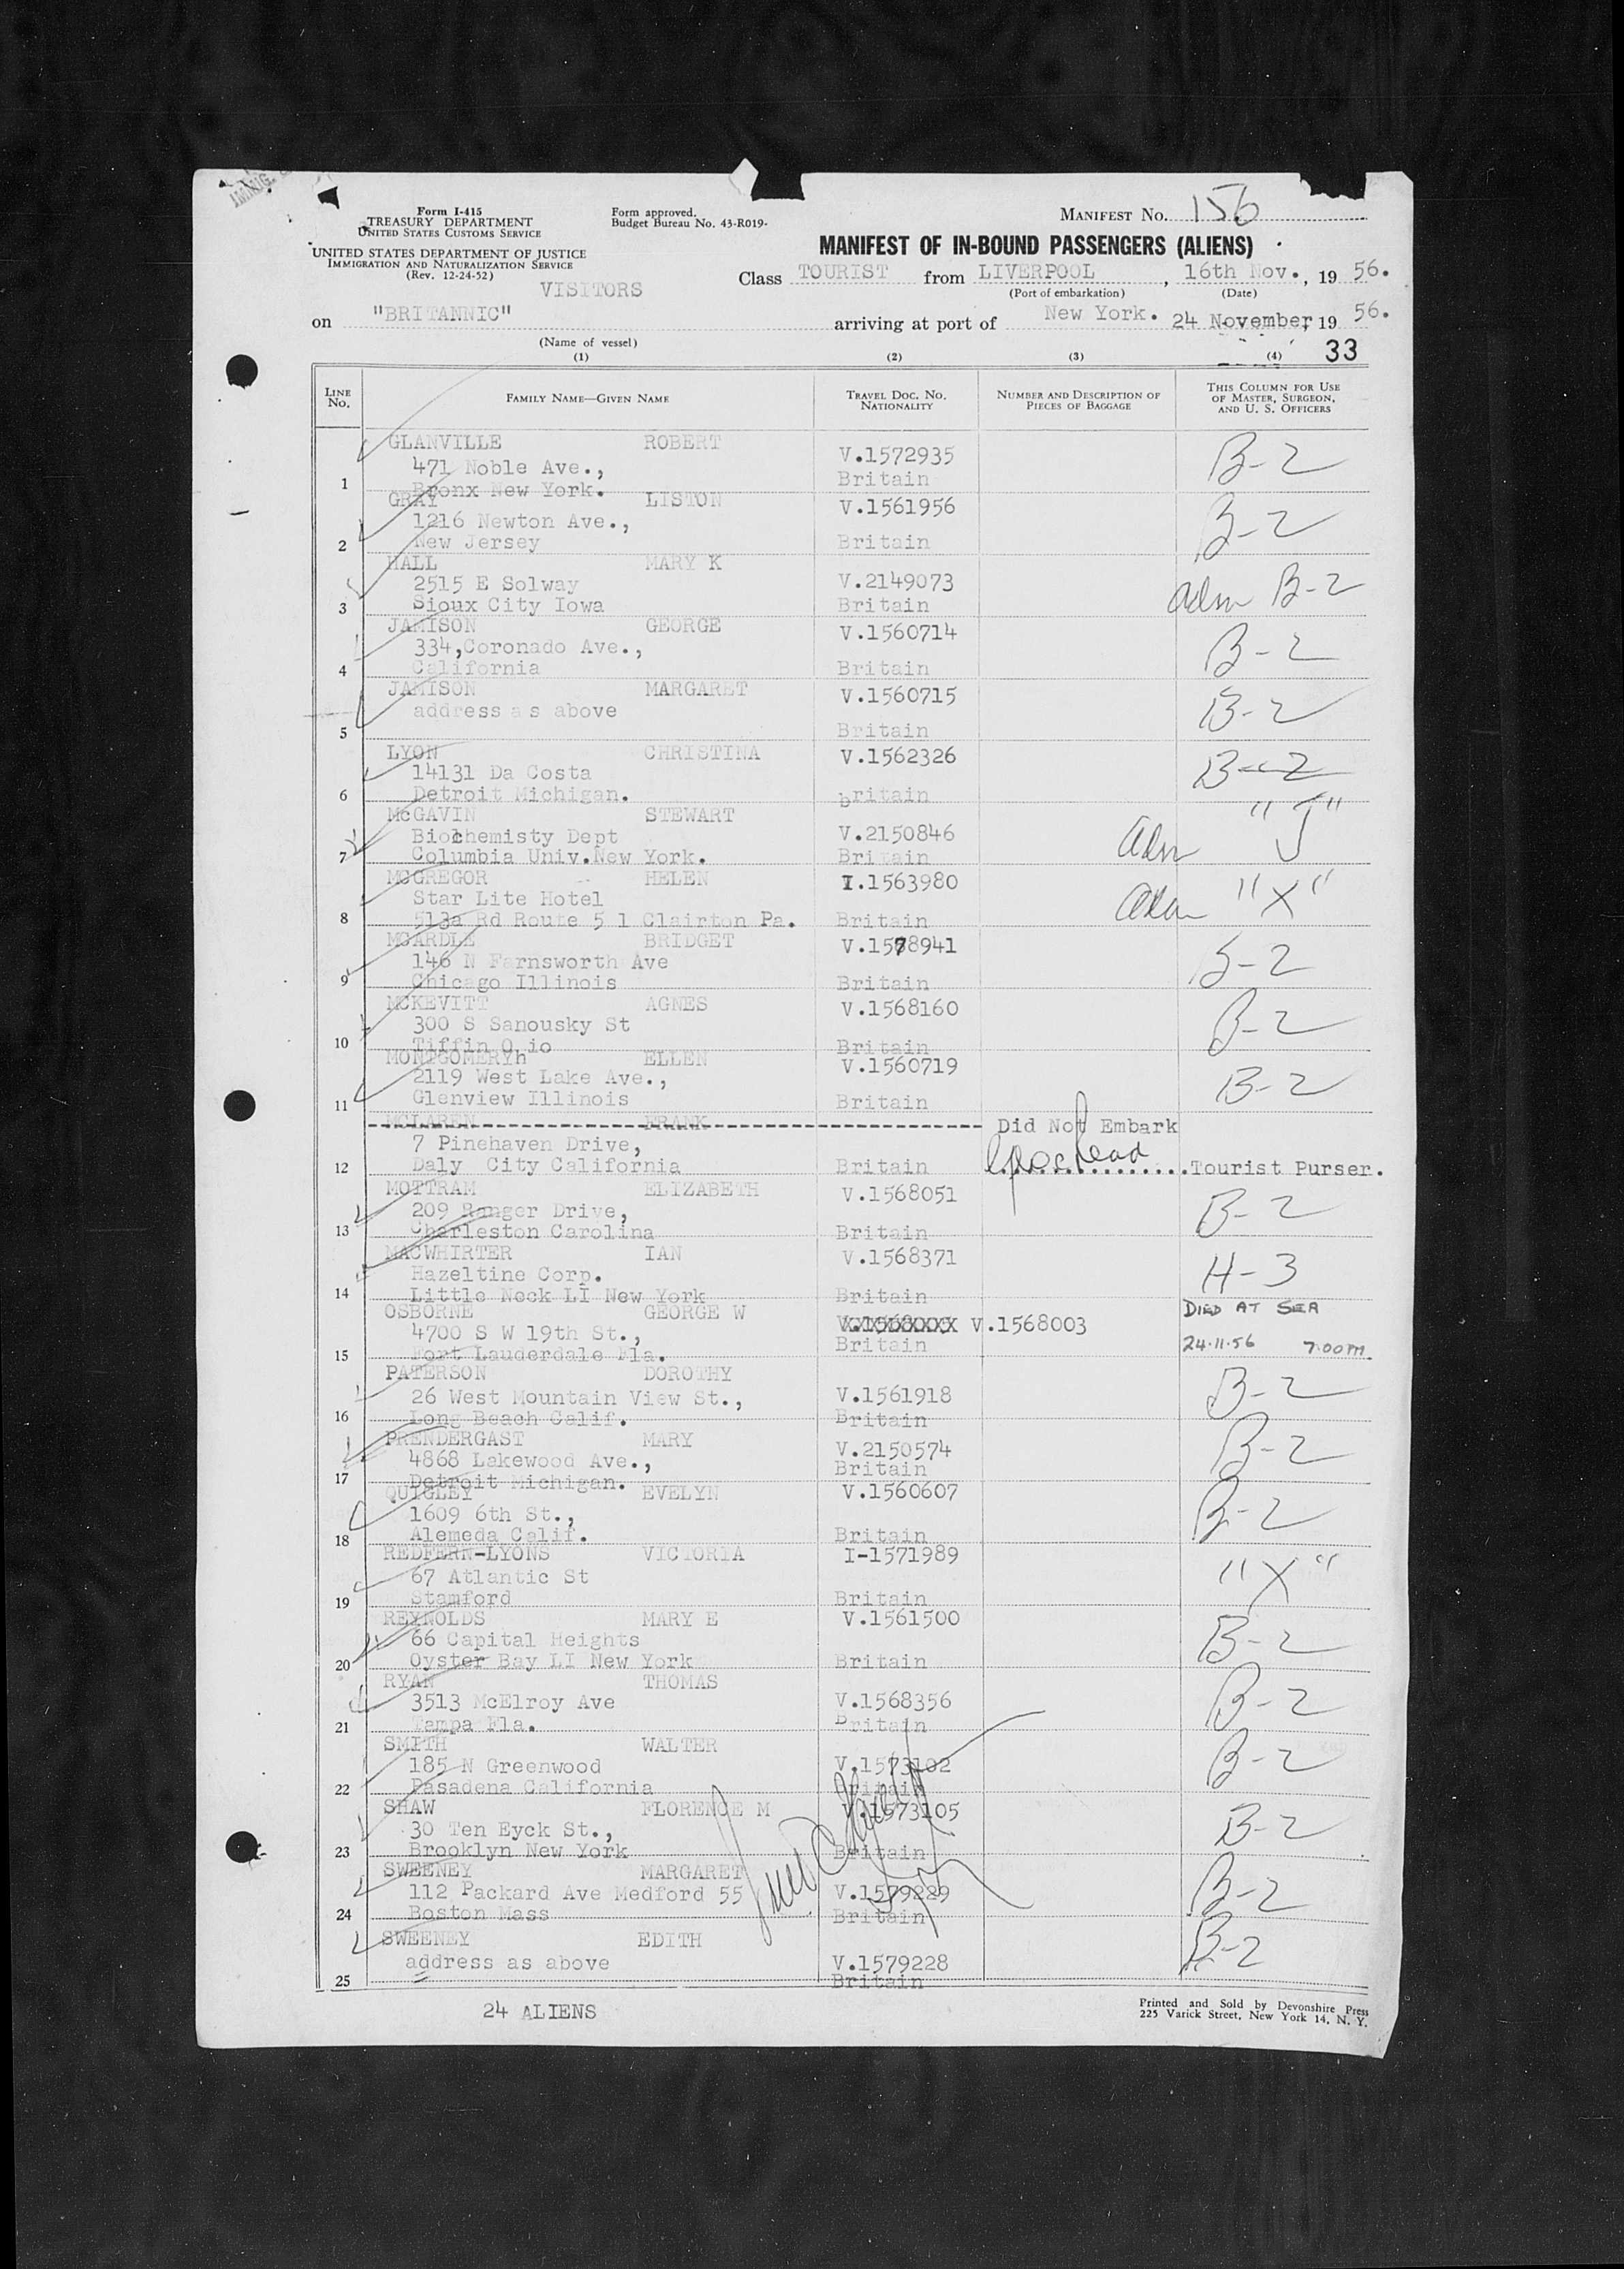 IMMIG.
Form I-415
TREASURY DEPARTMENT
UNITED STATES CUSTOMS SERVICE
UNITED STATES DEPARTMENT OF JUSTICE
IMMIGRATION AND NATURALIZATION SERVICE
(Rev. 12-24-52)
Form approved.
Budget Bureau No. 43-R019-
MANIFEST No. 156
MANIFEST OF IN-BOUND PASSENGERS (ALIENS)
Class TOURIST from LIVERPOOL, 16th Nov., 19 56.
(Port of embarkation) (Date)
VISITORS
on "BRITANNIC" arriving at port of New York. 24 November, 19 56.
(Name of vessel)
(1) (2) (3) (4) 33
LINE No. FAMILY NAME—GIVEN NAME TRAVEL DOC. NO. NATIONALITY NUMBER AND DESCRIPTION OF PIECES OF BAGGAGE THIS COLUMN FOR USE OF MASTER, SURGEON, AND U. S. OFFICERS
GLANVILLE ROBERT V.1572935 B-2
471 Noble Ave.,
1 Bronx New York. Britain
GRAY LISTON V.1561956 B-2
1216 Newton Ave.,
2 New Jersey Britain
HALL MARY K
2515 E Solway V.2149073 adm B-2
3 Sioux City Iowa Britain
JAMISON GEORGE V.1560714 B-2
334,Coronado Ave.,
4 California Britain
JAMISON MARGARET V.1560715 B-2
address as above
5 Britain
LYON CHRISTINA V.1562326 B-2
14131 Da Costa
6 Detroit Michigan. britain
McGAVIN STEWART "J"
Biochemisty Dept V.2150846 adm
7 Columbia Univ.New York. Britain
MCGREGOR HELEN I.1563980 adm "X"
Star Lite Hotel
8 513a Rd Route 5 1 Clairton Pa. Britain
MCARDLE BRIDGET V.1578941 B-2
146 N Farnsworth Ave
9 Chicago Illinois Britain
MCKEVITT AGNES V.1568160 B-2
300 S Sanousky St
10 Tiffin O io Britain
MONTGOMERYh ELLEN V.1560719 B-2
2119 West Lake Ave.,
11 Glenview Illinois Britain
MCLAREN FRANK Did Not Embark
7 Pinehaven Drive,
12 Daly City California Britain Tourist Purser.
MOTTRAM ELIZABETH V.1568051 B-2
209 Ranger Drive,
13 Charleston Carolina Britain
MACWHIRTER IAN V.1568371 H-3
Hazeltine Corp.
14 Little Neck LI New York Britain
OSBORNE GEORGE W DIED AT SEA
4700 S W 19th St., V.1568003
15 Fort Lauderdale Fla. Britain 24.11.56 7.00PM
PATERSON DOROTHY B-2
26 West Mountain View St., V.1561918
16 Long Beach Calif. Britain
PRENDERGAST MARY V.2150574 B-2
4868 Lakewood Ave., Britain
17 Detroit Michigan.
QUIGLEY EVELYN V.1560607 B-2
1609 6th St.,
18 Alemeda Calif. Britain
REDFERN-LYONS VICTORIA I-1571989 "X"
67 Atlantic St
19 Stamford Britain
REYNOLDS MARY E V.1561500 B-2
66 Capital Heights
20 Oyster Bay LI New York Britain
RYAN THOMAS B-2
3513 McElroy Ave V.1568356
21 Tampa Fla. Britain
SMITH WALTER B-2
185 N Greenwood V.1573102
22 Pasadena California Britain
SHAW FLORENCE M V.1573105 B-2
30 Ten Eyck St.,
23 Brooklyn New York Britain
SWEENEY MARGARET B-2
112 Packard Ave Medford 55 V.1579229
24 Boston Mass Britain
SWEENEY EDITH B-2
address as above V.1579228
25 Britain
24 ALIENS
Printed and Sold by Devonshire Press
225 Varick Street, New York 14, N. Y.